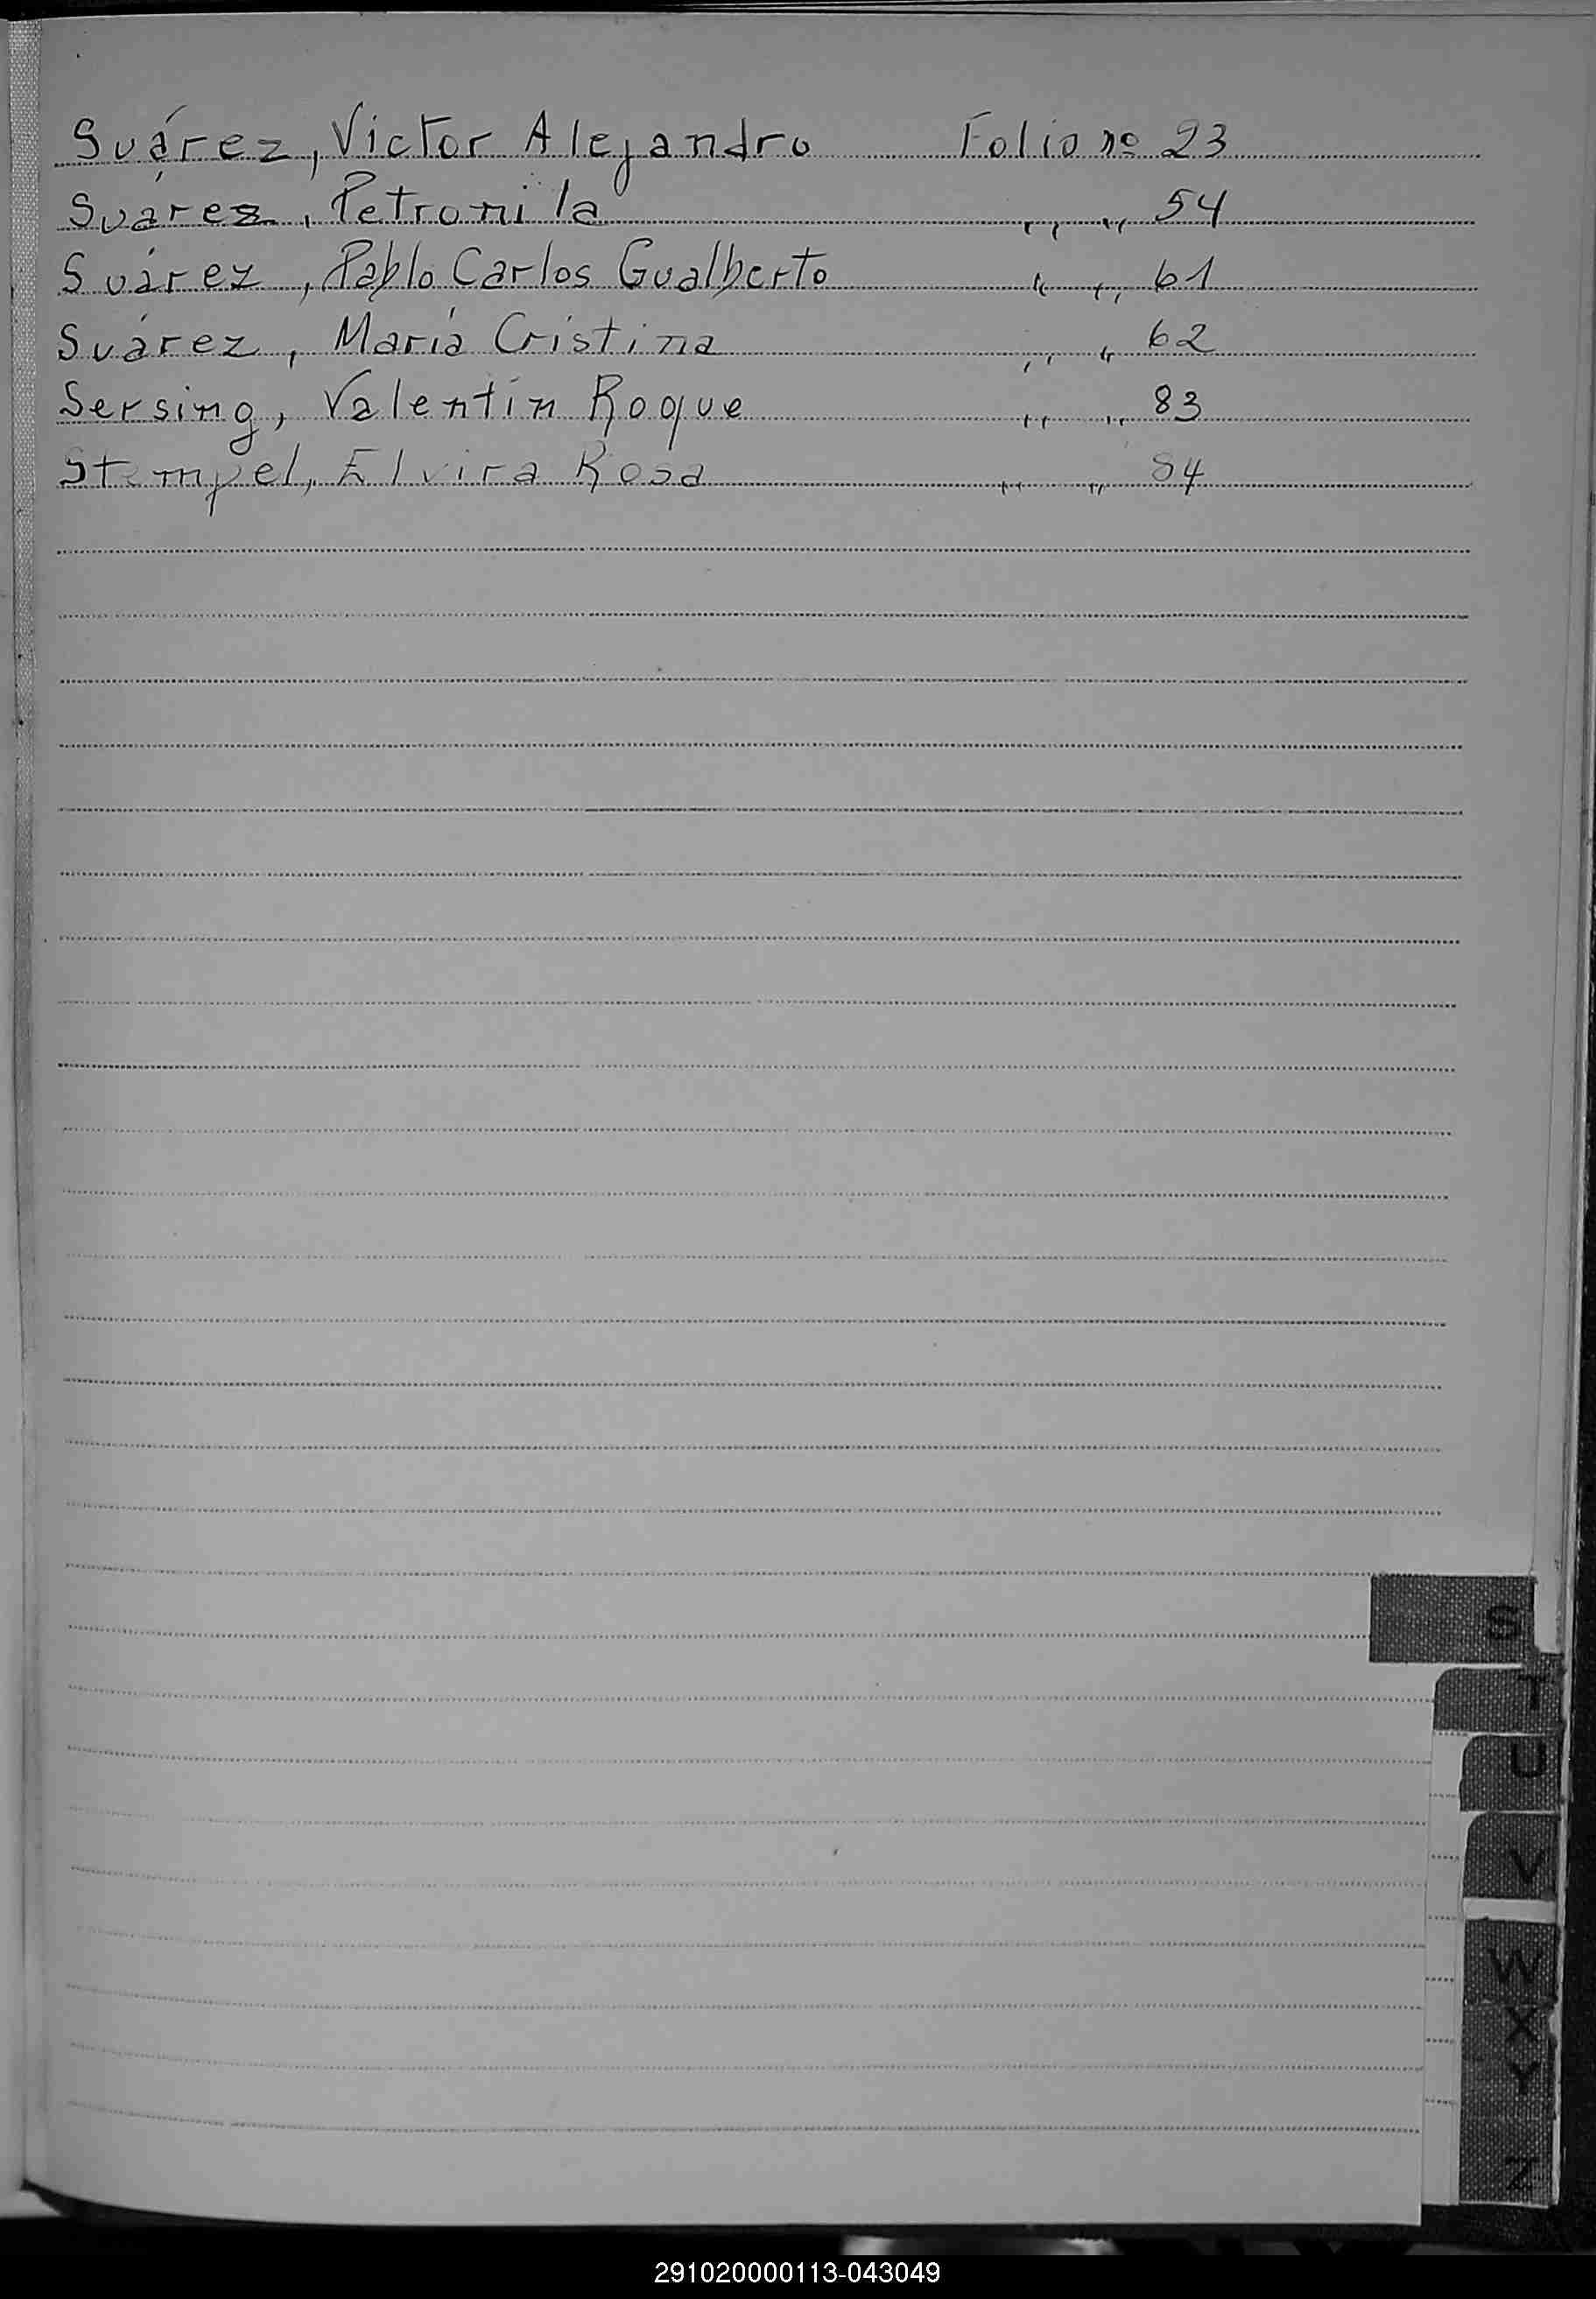 Suárez, Victor Alejandro Folio nº 23
Suárez, Petronila " " 54
Suárez, Pablo Carlos Gualberto " " 61
Suárez, María Cristina " " 62
Sersing, Valentín Roque " " 83
Stempel, Elvira Rosa " " 84
S
T
U
V
W
X
Y
Z
291020000113-043049